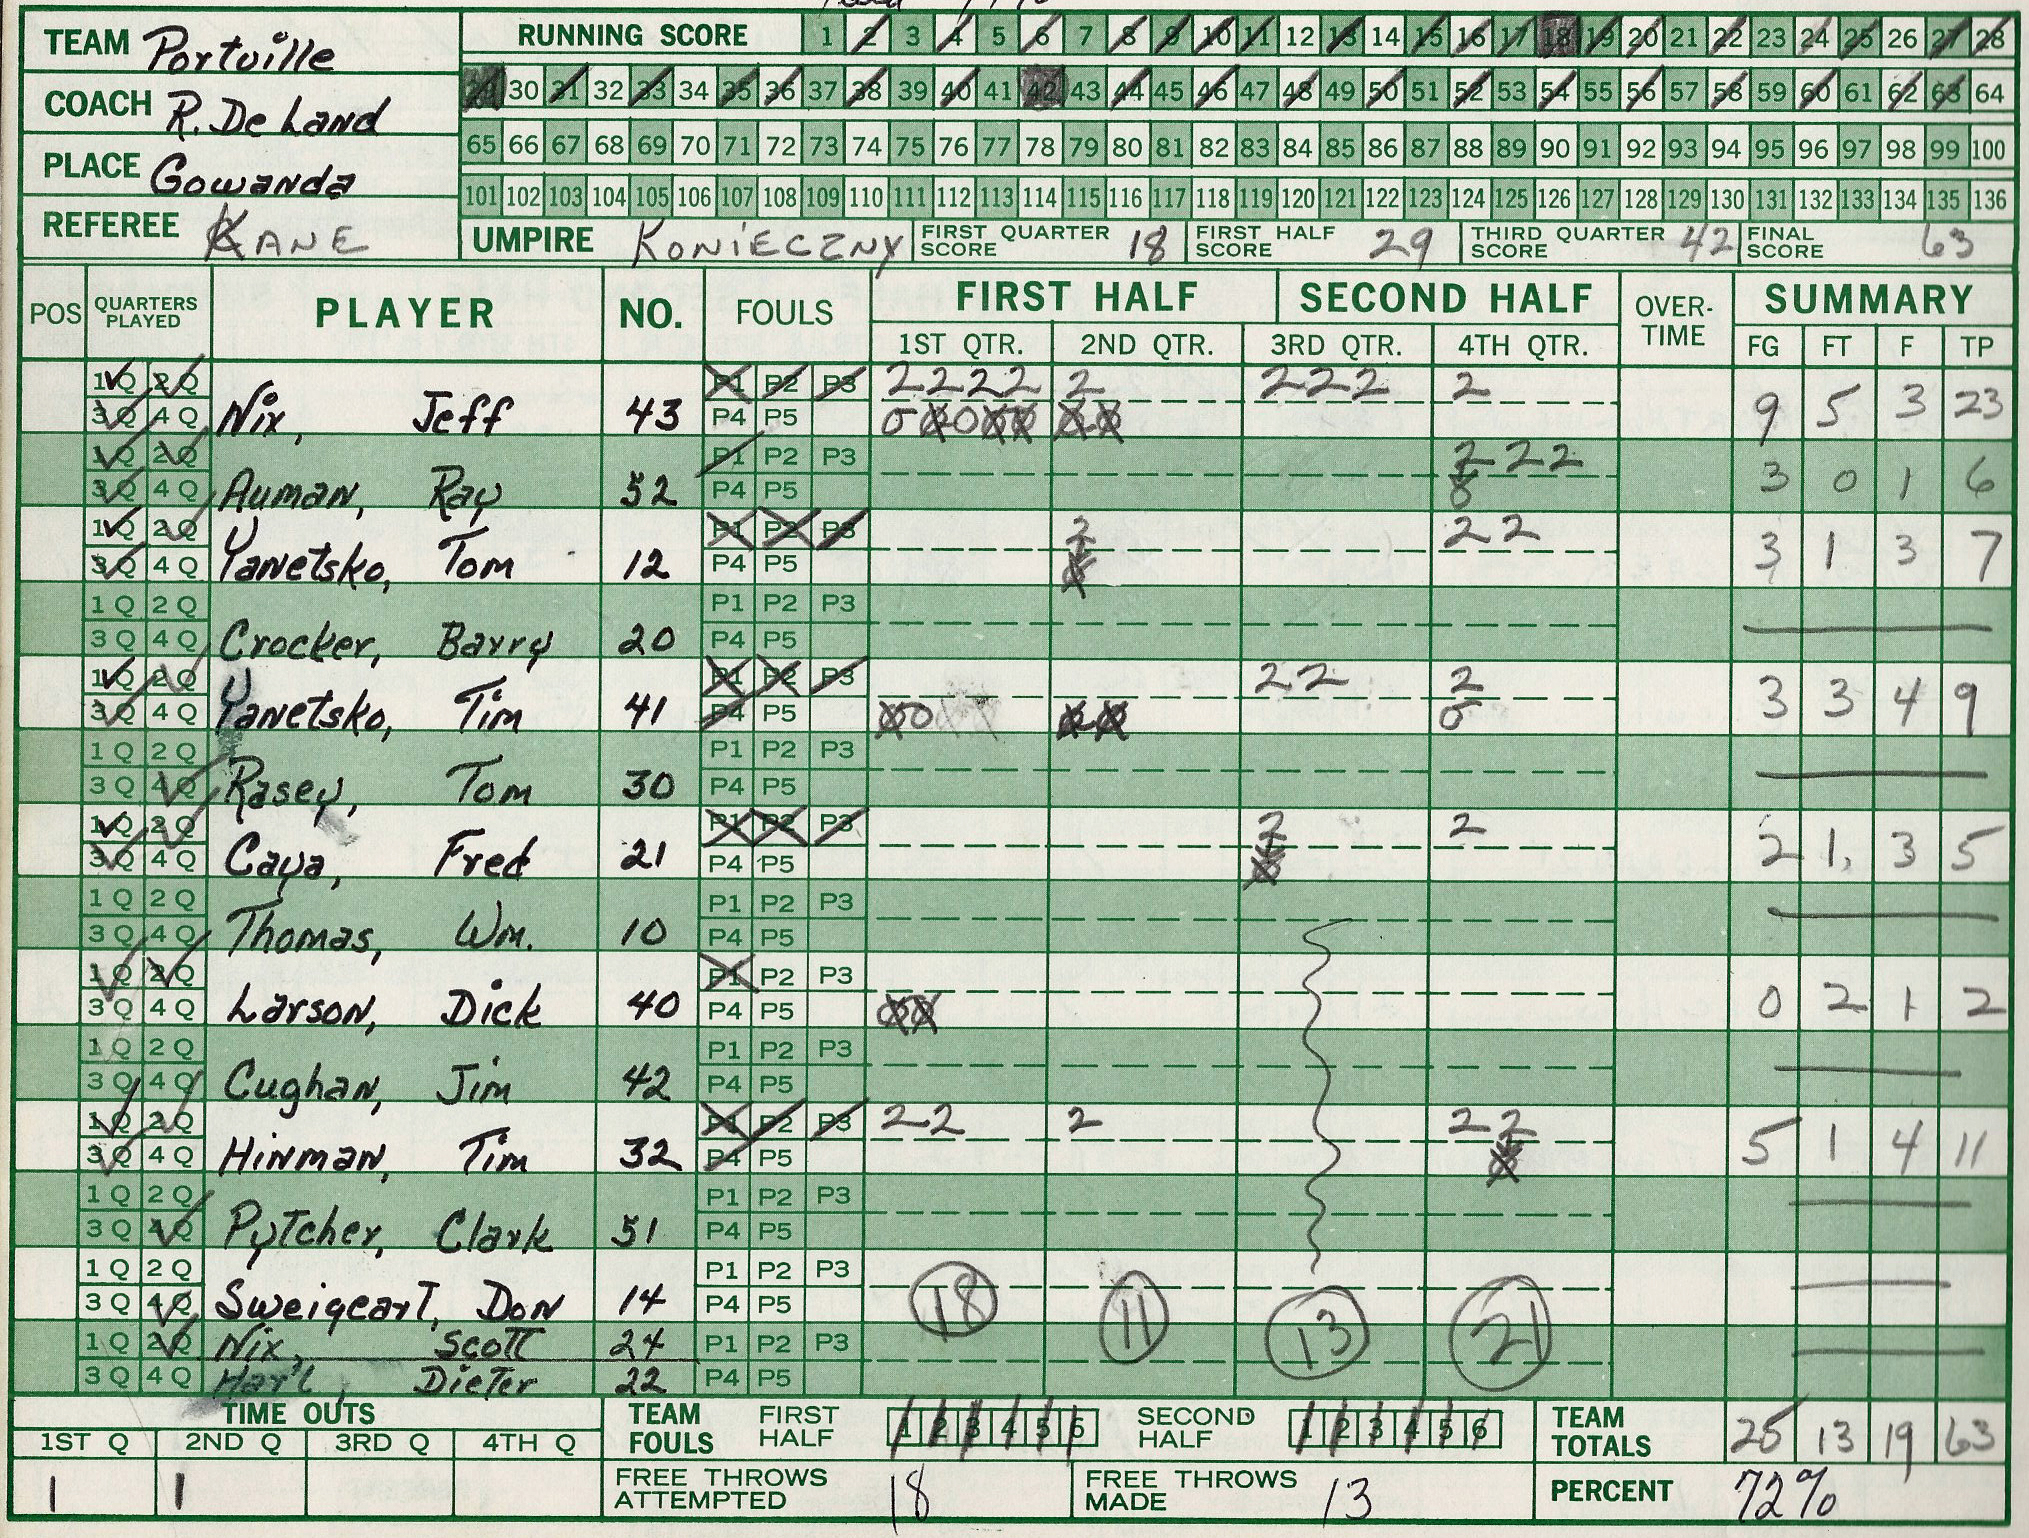 TEAM Portville
RUNNING SCORE 1 2 3 4 5 6 7 8 9 10 11 12 13 14 15 16 17 18 19 20 21 22 23 24 25 26 27 28
29 30 31 32 33 34 35 36 37 38 39 40 41 42 43 44 45 46 47 48 49 50 51 52 53 54 55 56 57 58 59 60 61 62 63 64
COACH R. De Land
65 66 67 68 69 70 71 72 73 74 75 76 77 78 79 80 81 82 83 84 85 86 87 88 89 90 91 92 93 94 95 96 97 98 99 100
PLACE Gowanda
101 102 103 104 105 106 107 108 109 110 111 112 113 114 115 116 117 118 119 120 121 122 123 124 125 126 127 128 129 130 131 132 133 134 135 136
REFEREE KANE UMPIRE KONIECZNY FIRST QUARTER SCORE 18 FIRST HALF SCORE 29 THIRD QUARTER SCORE 42 FINAL SCORE 63
POS QUARTERS PLAYED PLAYER NO. FOULS FIRST HALF SECOND HALF OVER-TIME SUMMARY
1ST QTR. 2ND QTR. 3RD QTR. 4TH QTR. FG FT F TP
1 Q 2 Q P1 P2 P3 2 2 2 2 2 2 2 2 2
3 Q 4 Q Nix, Jeff 43 P4 P5 0 0 0 0 0 0 0 9 5 3 23
1 Q 2 Q P1 P2 P3 2 2 2
3 Q 4 Q Auman, Ray 52 P4 P5 0 3 0 1 6
1 Q 2 Q P1 P2 P3 2 2 2
3 Q 4 Q Yanetsko, Tom 12 P4 P5 3 1 3 7
1 Q 2 Q P1 P2 P3
3 Q 4 Q Crocker, Barry 20 P4 P5
1 Q 2 Q P1 P2 P3 2 2 2
3 Q 4 Q Yanetsko, Tim 41 P4 P5 0 0 0 0 0 3 3 4 9
1 Q 2 Q P1 P2 P3
3 Q 4 Q Rasey, Tom 30 P4 P5
1 Q 2 Q P1 P2 P3 2 2
3 Q 4 Q Caya, Fred 21 P4 P5 2 1 3 5
1 Q 2 Q P1 P2 P3
3 Q 4 Q Thomas, Wm. 10 P4 P5
1 Q 2 Q P1 P2 P3
3 Q 4 Q Larson, Dick 40 P4 P5 0 0 0 2 1 2
1 Q 2 Q P1 P2 P3
3 Q 4 Q Cughan, Jim 42 P4 P5
1 Q 2 Q P1 P2 P3 2 2 2 2 2
3 Q 4 Q Hinman, Tim 32 P4 P5 0 5 1 4 11
1 Q 2 Q P1 P2 P3
3 Q 4 Q Pytcher, Clark 51 P4 P5
1 Q 2 Q P1 P2 P3
3 Q 4 Q Sweigeart, Don 14 P4 P5 18 11 13 21
1 Q 2 Q Nix, Scott 24 P1 P2 P3
3 Q 4 Q Dieter 22 P4 P5
TIME OUTS TEAM FOULS FIRST HALF 1 2 3 4 5 6 SECOND HALF 1 2 3 4 5 6 TEAM TOTALS 25 13 19 63
1ST Q 2ND Q 3RD Q 4TH Q
1 1 FREE THROWS ATTEMPTED 18 FREE THROWS MADE 13 PERCENT 72%